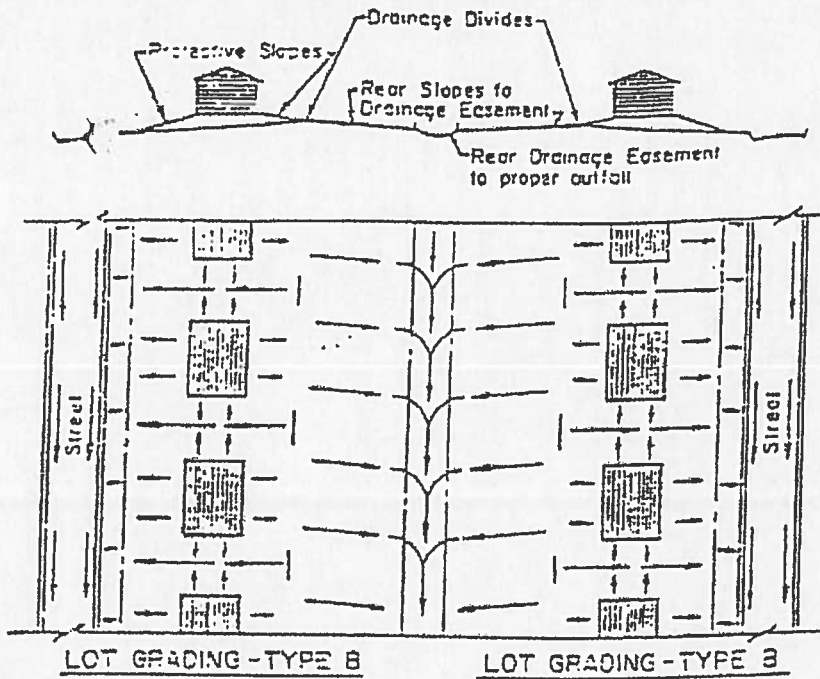 Drainage Divides
Protective Slopes
Rear Slopes to
Drainage Easement
Rear Drainage Easement
to proper outfall
Street
Street
LOT GRADING - TYPE B
LOT GRADING - TYPE B